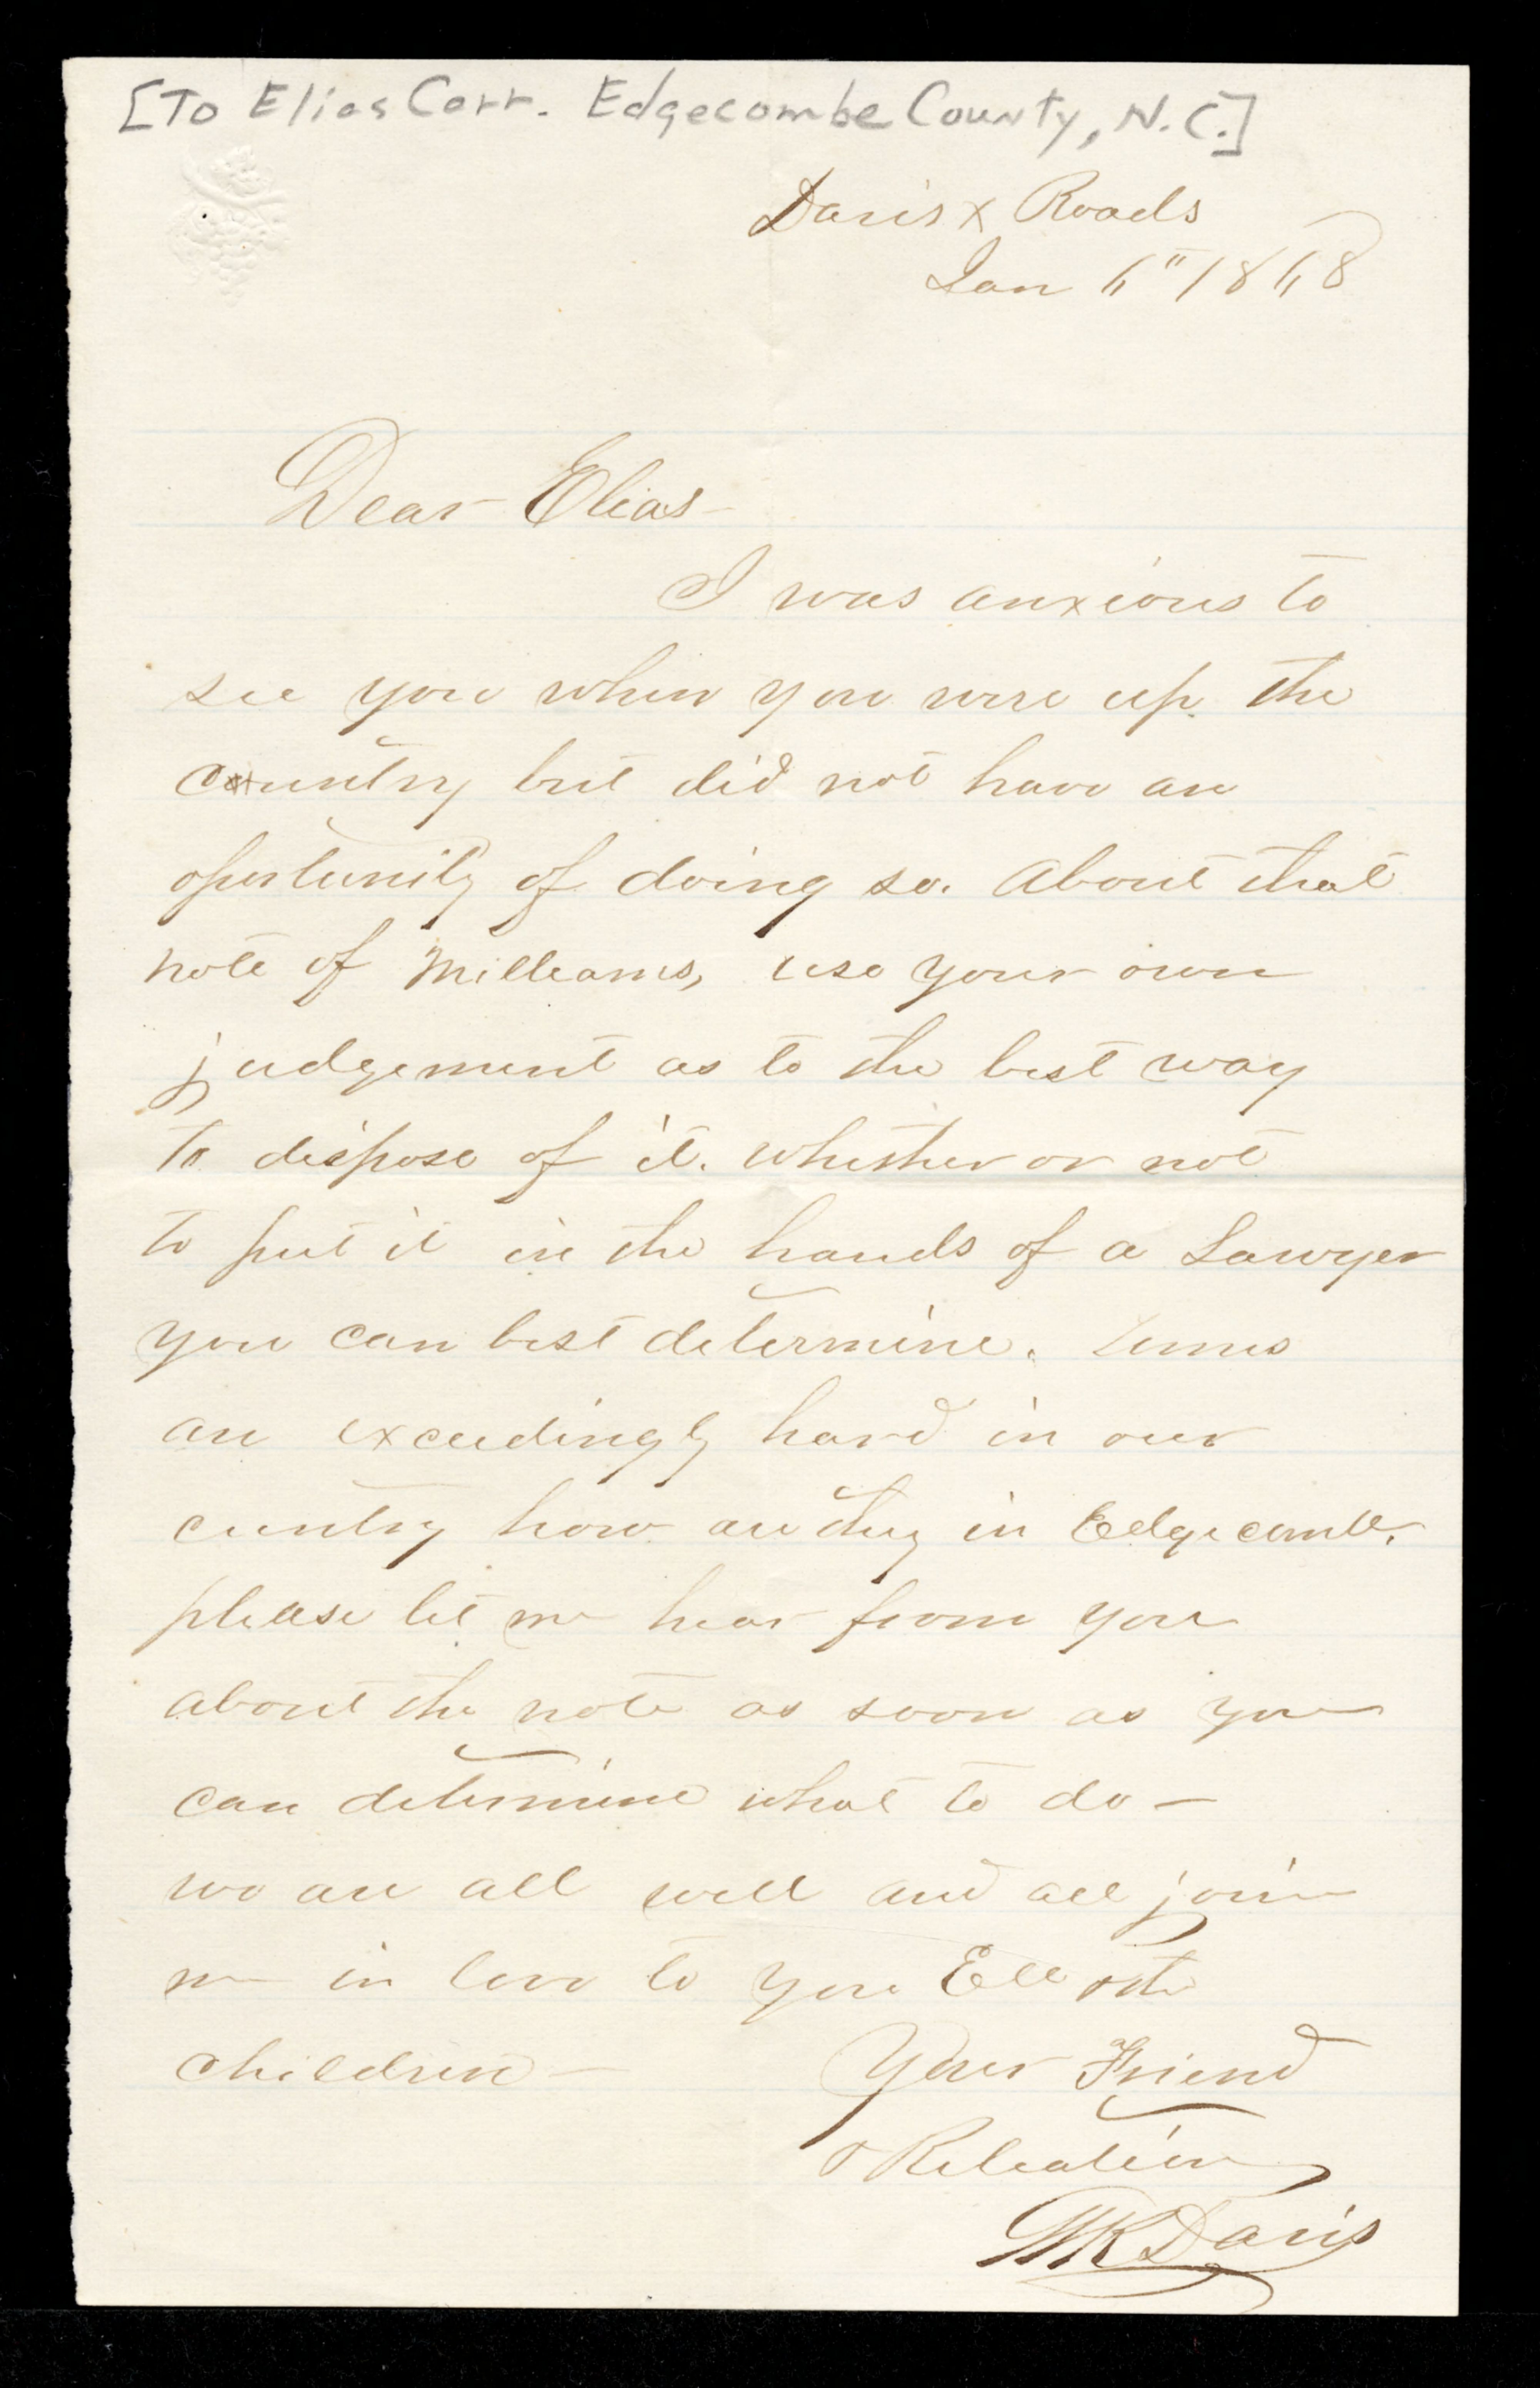 [To Elias Carr. Edgecombe County, N.C.]
Davis x Roads
Jan 6" 1868
Dear Elias
I was anxious to
see you when you were up the
country but did not have an
oportunity of doing so. About that
note of Milleams, use your own
judgement as to the best way
to dispose of it. whether or not
to put it in the hands of a Lawyer
you can best determine. times
are exceedingly hard in our
cuntry how are they in Edgecombe.
please let me hear from you
about the note as soon as you
can determine what to do –
we are all well and all join
me in love to you Ell & the
children –
Your Friend
& Relation
WK Davis